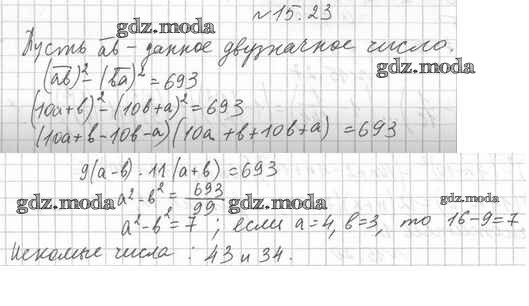 №15.23
gdz.moda
Пусть ab – данное двузначное число.
gdz.moda
(ab)² - (ba)² = 693
(10a+b)² - (10b+a)² = 693
(10a+b-10b-a)(10a+b+10b+a) = 693
9(a-b)·11(a+b) = 693
gdz.moda a² - b² = 693/99 gdz.moda gdz.moda
a² - b² = 7 ; если a=4, b=3, то 16-9=7.
Искомые числа: 43 и 34.